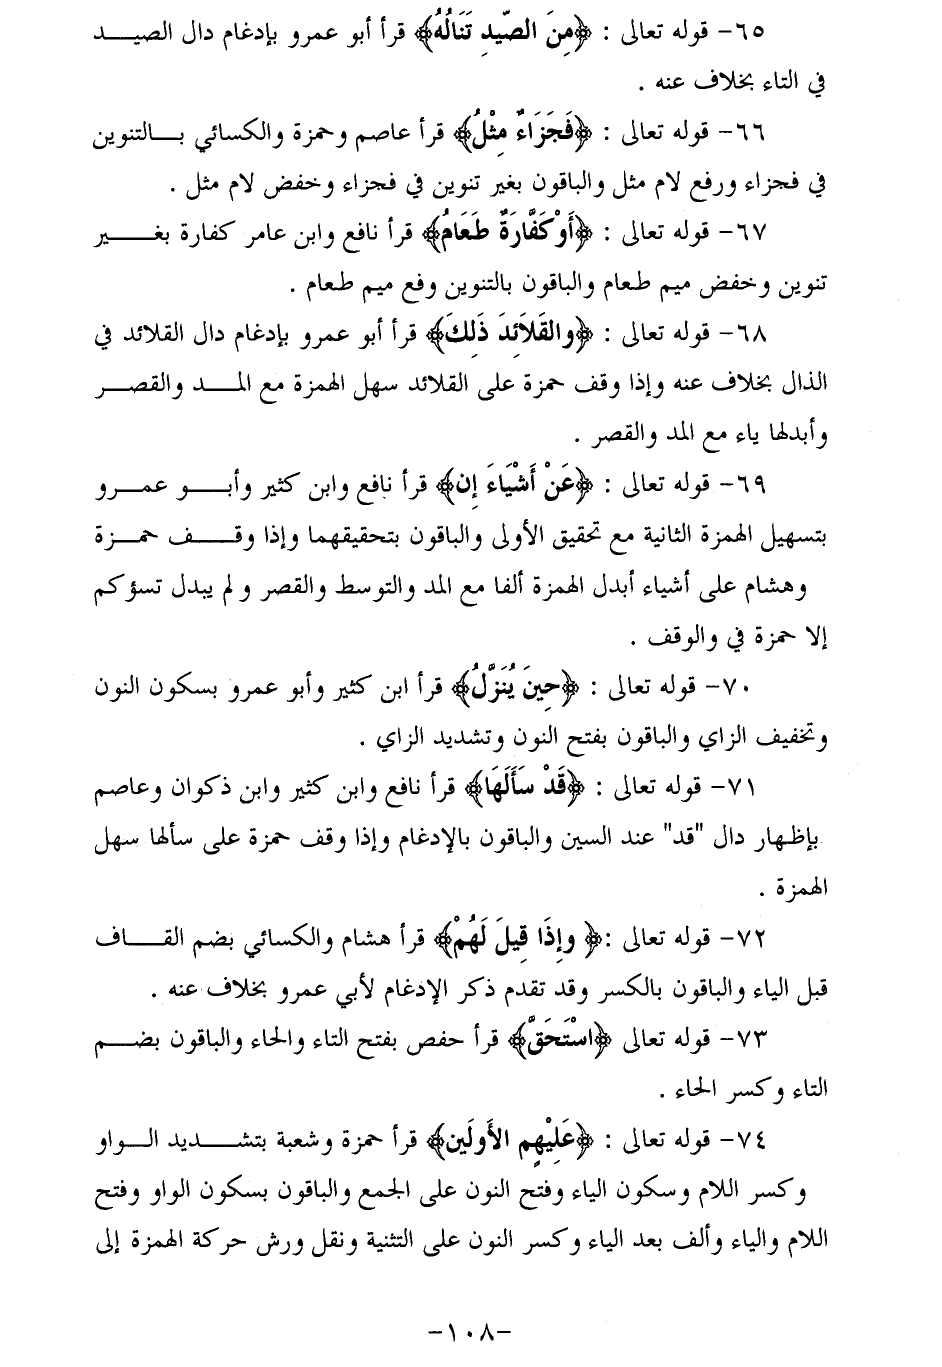 ٦٥- قوله تعالى : ﴿مِنَ الصّيدِ تَنَالُهُ﴾ قرأ أبو عمرو بإدغام دال الصيد
في التاء بخلاف عنه .
٦٦- قوله تعالى : ﴿فَجَزَاءٌ مِثْلُ﴾ قرأ عاصم وحمزة والكسائي بالتنوين
في فجزاء ورفع لام مثل والباقون بغير تنوين في فجزاء وخفض لام مثل .
٦٧- قوله تعالى : ﴿أَوْ كَفَّارَةٌ طَعَامُ﴾ قرأ نافع وابن عامر كفارة بغير
تنوين وخفض ميم طعام والباقون بالتنوين وفع ميم طعام .
٦٨- قوله تعالى : ﴿والقَلاَئِدَ ذَلِكَ﴾ قرأ أبو عمرو بإدغام دال القلائد في
الذال بخلاف عنه وإذا وقف حمزة على القلائد سهل الهمزة مع المد والقصر
وأبدلها ياء مع المد والقصر .
٦٩- قوله تعالى : ﴿عَنْ أَشْيَاءَ إِن﴾ قرأ نافع وابن كثير وأبو عمرو
بتسهيل الهمزة الثانية مع تحقيق الأولى والباقون بتحقيقهما وإذا وقف حمزة
وهشام على أشياء أبدل الهمزة ألفا مع المد والتوسط والقصر ولم يبدل تسؤكم
إلا حمزة في والوقف .
٧٠- قوله تعالى : ﴿حِينَ يُنَزَّلُ﴾ قرأ ابن كثير وأبو عمرو بسكون النون
وتخفيف الزاي والباقون بفتح النون وتشديد الزاي .
٧١- قوله تعالى : ﴿قَدْ سَأَلَهَا﴾ قرأ نافع وابن كثير وابن ذكوان وعاصم
بإظهار دال "قد" عند السين والباقون بالإدغام وإذا وقف حمزة على سألها سهل
الهمزة .
٧٢- قوله تعالى :﴿ وإِذَا قِيلَ لَهُمْ﴾ قرأ هشام والكسائي بضم القاف
قبل الياء والباقون بالكسر وقد تقدم ذكر الإدغام لأبي عمرو بخلاف عنه .
٧٣- قوله تعالى ﴿اسْتَحَقَّ﴾ قرأ حفص بفتح التاء والحاء والباقون بضم
التاء وكسر الحاء .
٧٤- قوله تعالى : ﴿عَلَيْهِمِ الأَولَين﴾ قرأ حمزة وشعبة بتشديد الواو
وكسر اللام وسكون الياء وفتح النون على الجمع والباقون بسكون الواو وفتح
اللام والياء وألف بعد الياء وكسر النون على التثنية ونقل ورش حركة الهمزة إلى
-١٠٨-